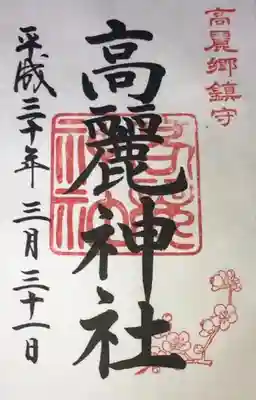 高麗郷鎮守
高麗神社
平成三十年 三月三十一日
高麗神社